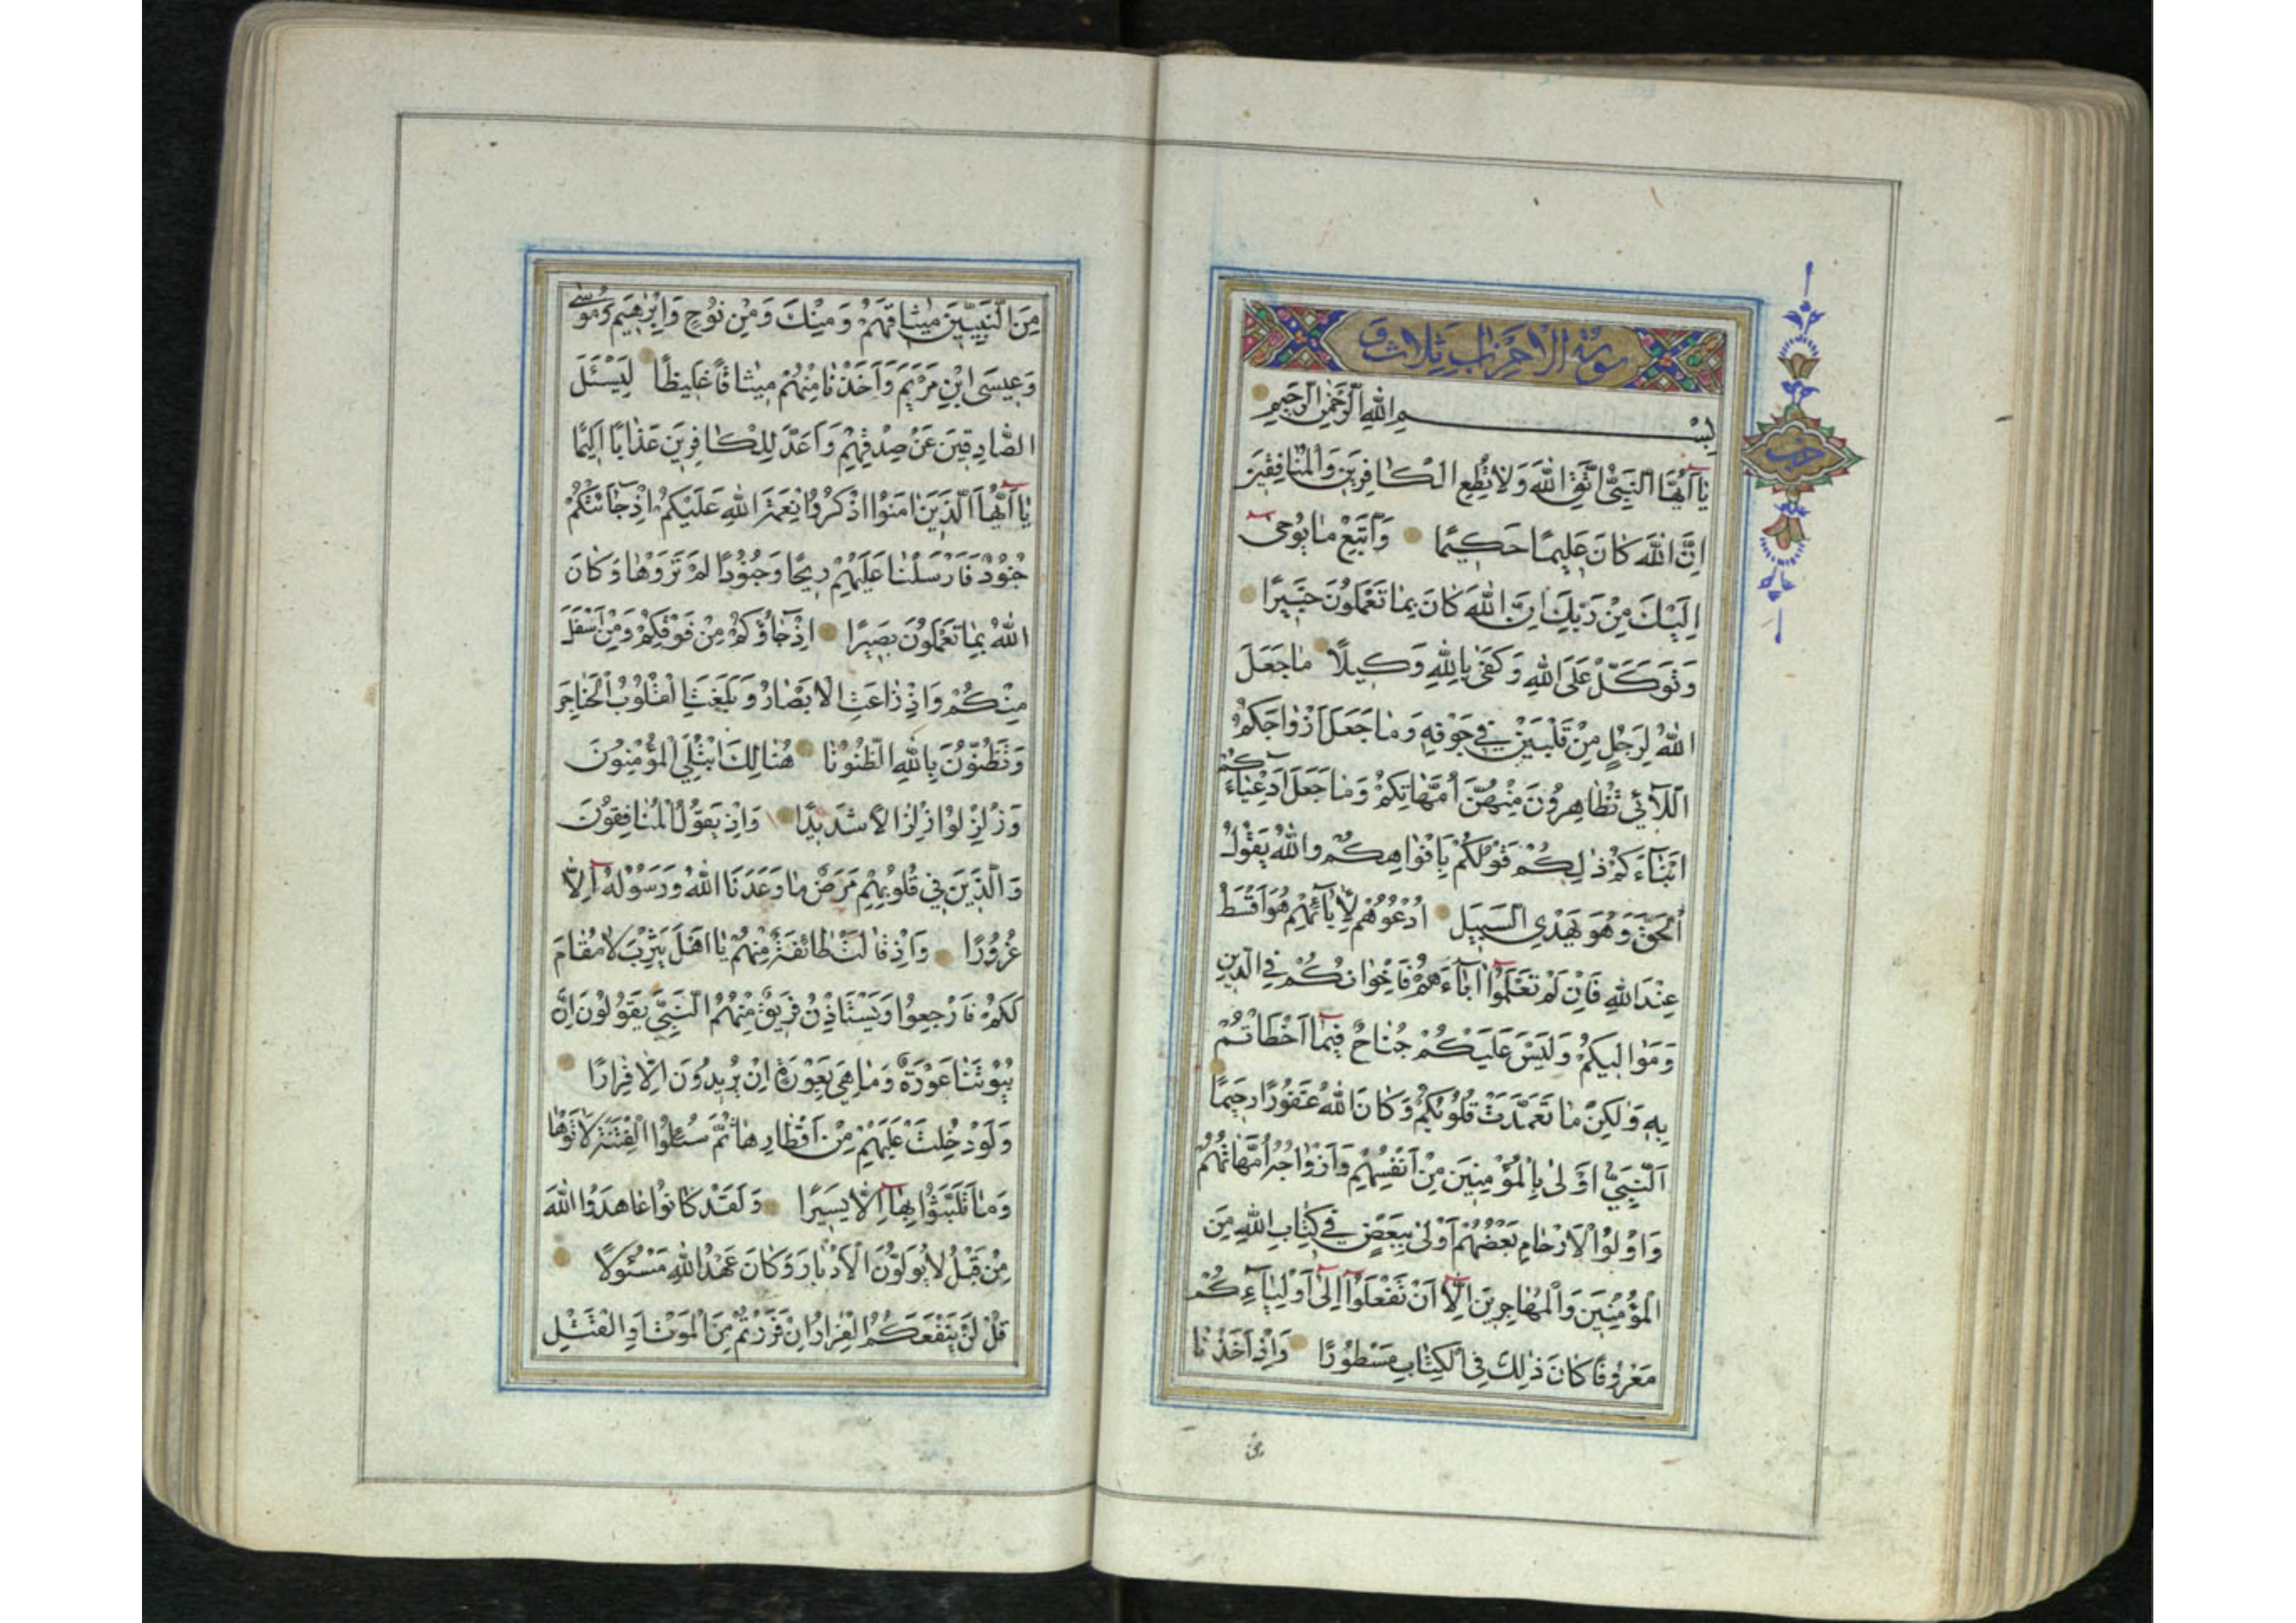 سورة الاحزاب ثلاث و
حزب
بِسْمِ اللهِ الرَّحْمٰنِ الرَّحِيمِ
يٰا اَيُّهَا النَّبِيُّ اتَّقِ اللهَ وَلٰا تُطِعِ الْكٰافِرِينَ وَالْمُنٰافِقِينَ
اِنَّ اللهَ كٰانَ عَلِيمًا حَكِيمًا وَاتَّبِعْ مٰا يُوحىٰ
اِلَيْكَ مِنْ رَبِّكَ اِنَّ اللهَ كٰانَ بِمٰا تَعْمَلُونَ خَبِيرًا
وَتَوَكَّلْ عَلَى اللهِ وَكَفىٰ بِاللهِ وَكِيلًا مٰا جَعَلَ
اللهُ لِرَجُلٍ مِنْ قَلْبَيْنِ فِي جَوْفِهِ وَمٰا جَعَلَ اَزْوٰاجَكُمُ
اللّٰائِي تُظٰاهِرُونَ مِنْهُنَّ اُمَّهٰاتِكُمْ وَمٰا جَعَلَ اَدْعِيٰاءَكُمْ
اَبْنٰاءَكُمْ ذٰلِكُمْ قَوْلُكُمْ بِاَفْوٰاهِكُمْ وَاللهُ يَقُولُ
الْحَقَّ وَهُوَ يَهْدِي السَّبِيلَ اُدْعُوهُمْ لِاٰبٰائِهِمْ هُوَ اَقْسَطُ
عِنْدَ اللهِ فَاِنْ لَمْ تَعْلَمُوا اٰبٰاءَهُمْ فَاِخْوٰانُكُمْ فِي الدِّينِ
وَمَوٰالِيكُمْ وَلَيْسَ عَلَيْكُمْ جُنٰاحٌ فِيمٰا اَخْطَاْتُمْ
بِهِ وَلٰكِنْ مٰا تَعَمَّدَتْ قُلُوبُكُمْ وَكٰانَ اللهُ غَفُورًا رَحِيمًا
اَلنَّبِيُّ اَوْلىٰ بِالْمُؤْمِنِينَ مِنْ اَنْفُسِهِمْ وَاَزْوٰاجُهُ اُمَّهٰاتُهُمْ
وَاُولُوا الْاَرْحٰامِ بَعْضُهُمْ اَوْلىٰ بِبَعْضٍ فِي كِتٰابِ اللهِ مِنَ
الْمُؤْمِنِينَ وَالْمُهٰاجِرِينَ اِلّٰا اَنْ تَفْعَلُوا اِلىٰ اَوْلِيٰاءِكُمْ
مَعْرُوفًا كٰانَ ذٰلِكَ فِي الْكِتٰابِ مَسْطُورًا وَاِذْ اَخَذْنٰا
من
مِنَ النَّبِيِّينَ مِيثٰاقَهُمْ وَمِنْكَ وَمِنْ نُوحٍ وَاِبْرٰهِيمَ وَمُوسىٰ
وَعِيسَى ابْنِ مَرْيَمَ وَاَخَذْنٰا مِنْهُمْ مِيثٰاقًا غَلِيظًا لِيَسْئَلَ
الصّٰادِقِينَ عَنْ صِدْقِهِمْ وَاَعَدَّ لِلْكٰافِرِينَ عَذٰابًا اَلِيمًا
يٰا اَيُّهَا الَّذِينَ اٰمَنُوا اذْكُرُوا نِعْمَةَ اللهِ عَلَيْكُمْ اِذْ جٰائَتْكُمْ
جُنُودٌ فَاَرْسَلْنٰا عَلَيْهِمْ رِيحًا وَجُنُودًا لَمْ تَرَوْهٰا وَكٰانَ
اللهُ بِمٰا تَعْمَلُونَ بَصِيرًا اِذْ جٰاؤُكُمْ مِنْ فَوْقِكُمْ وَمِنْ اَسْفَلَ
مِنْكُمْ وَاِذْ زٰاغَتِ الْاَبْصٰارُ وَبَلَغَتِ الْقُلُوبُ الْحَنٰاجِرَ
وَتَظُنُّونَ بِاللهِ الظُّنُونٰا هُنٰالِكَ ابْتُلِيَ الْمُؤْمِنُونَ
وَزُلْزِلُوا زِلْزٰالًا شَدِيدًا وَاِذْ يَقُولُ الْمُنٰافِقُونَ
وَالَّذِينَ فِي قُلُوبِهِمْ مَرَضٌ مٰا وَعَدَنَا اللهُ وَرَسُولُهُ اِلّٰا
غُرُورًا وَاِذْ قٰالَتْ طٰائِفَةٌ مِنْهُمْ يٰا اَهْلَ يَثْرِبَ لٰا مُقٰامَ
لَكُمْ فَارْجِعُوا وَيَسْتَاْذِنُ فَرِيقٌ مِنْهُمُ النَّبِيَّ يَقُولُونَ اِنَّ
بُيُوتَنٰا عَوْرَةٌ وَمٰا هِيَ بِعَوْرَةٍ اِنْ يُرِيدُونَ اِلّٰا فِرٰارًا
وَلَوْ دُخِلَتْ عَلَيْهِمْ مِنْ اَقْطٰارِهٰا ثُمَّ سُئِلُوا الْفِتْنَةَ لَاٰتَوْهٰا
وَمٰا تَلَبَّثُوا بِهٰا اِلّٰا يَسِيرًا وَلَقَدْ كٰانُوا عٰاهَدُوا اللهَ
مِنْ قَبْلُ لٰا يُوَلُّونَ الْاَدْبٰارَ وَكٰانَ عَهْدُ اللهِ مَسْئُولًا
قُلْ لَنْ يَنْفَعَكُمُ الْفِرٰارُ اِنْ فَرَرْتُمْ مِنَ الْمَوْتِ اَوِ الْقَتْلِ